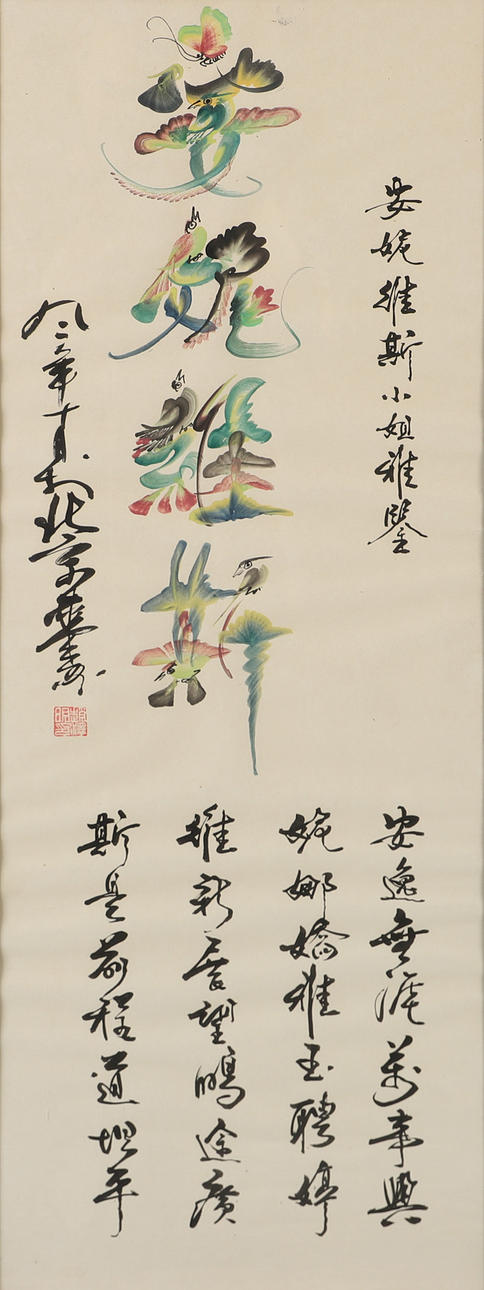 安婉維斯小姐雅鑒
安婉維斯
九二年十月於北京
安逸無涯萬事興
婉娜嬌雅玉聘婷
維新望鵬途廣
斯是前程道坦平